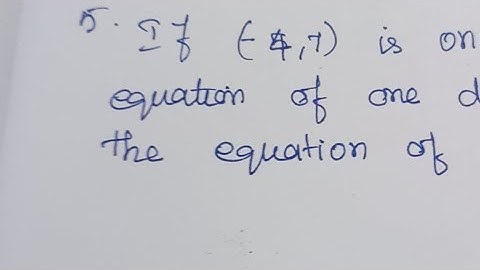 5. If (-4,7) is on
equation of one d
the equation of